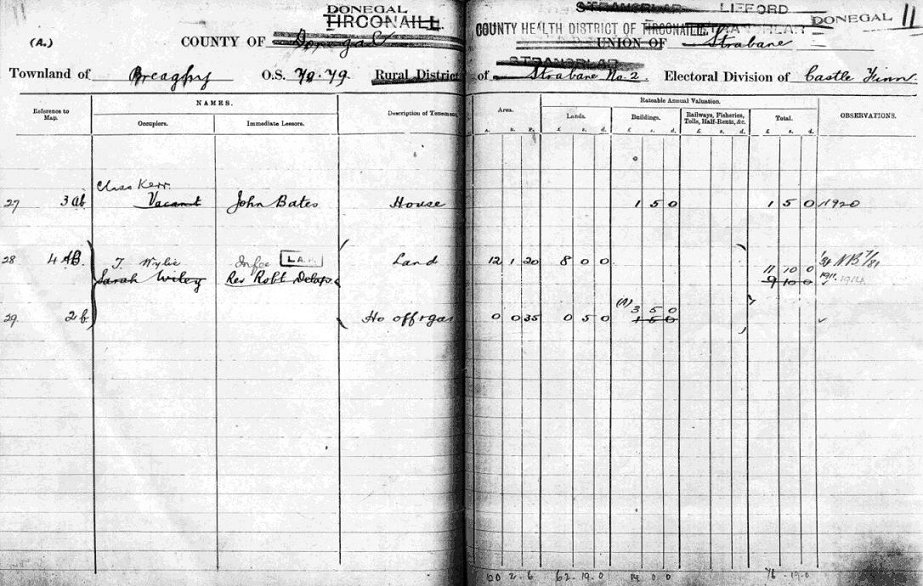 DONEGAL LIFFORD
TIRCONAILL COUNTY HEALTH DISTRICT OF TIRCONAILL DONEGAL 11
(A.) COUNTY OF Donegal UNION OF Strabane
Townland of Breaghy O.S. 70.79 Rural District of Strabane No. 2. Electoral Division of Castle Finn.
Reference to Map. NAMES. Description of Tenement Area. Rateable Annual Valuation. OBSERVATIONS.
Occupiers. Immediate Lessors. Lands. Buildings. Railways, Fisheries, Tolls, Half-Rents, &c. Total.
A. R. P. £ s. d. £ s. d. £ s. d. £ s. d.
Chas Kerr.
27 3 Vacant John Bates House 1 5 0 1 5 0 1920
28 4 T. Wylie In fee L.A.P. Land 12 1 20 8 0 0 11 10 0
Sarah Wiley Rev Robt Delap 9 10 0 1911 1914
3 5 0
29 2 b Ho off & gar 0 0 35 0 5 0 1 5 0
100 2 6 62 19 0 14 0 0 76 19 0